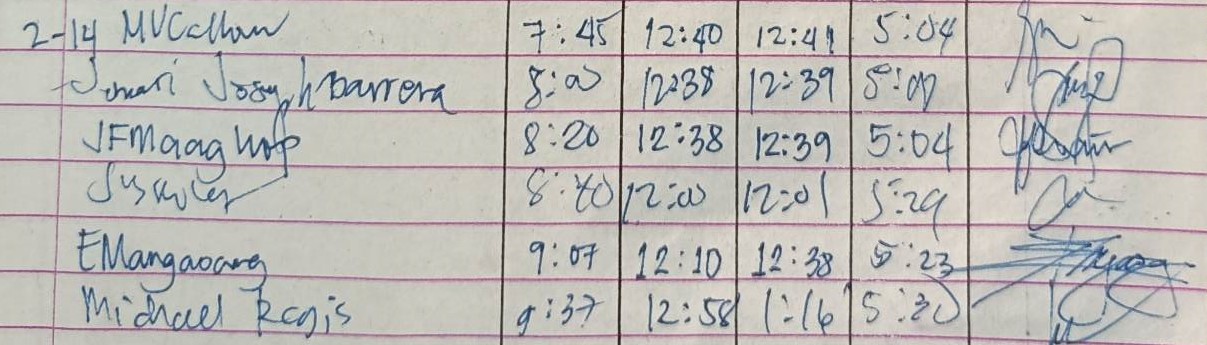 2-14 MVCallow 7:45 12:40 12:41 5:04
Jomari Joseph Barrera 8:00 12:38 12:39 5:07
JFMaaghop 8:20 12:38 12:39 5:04
8:40 12:00 12:01 5:29
EMangaoang 9:07 12:10 12:38 5:23
Michael Regis 9:37 12:58 1:16 5:30